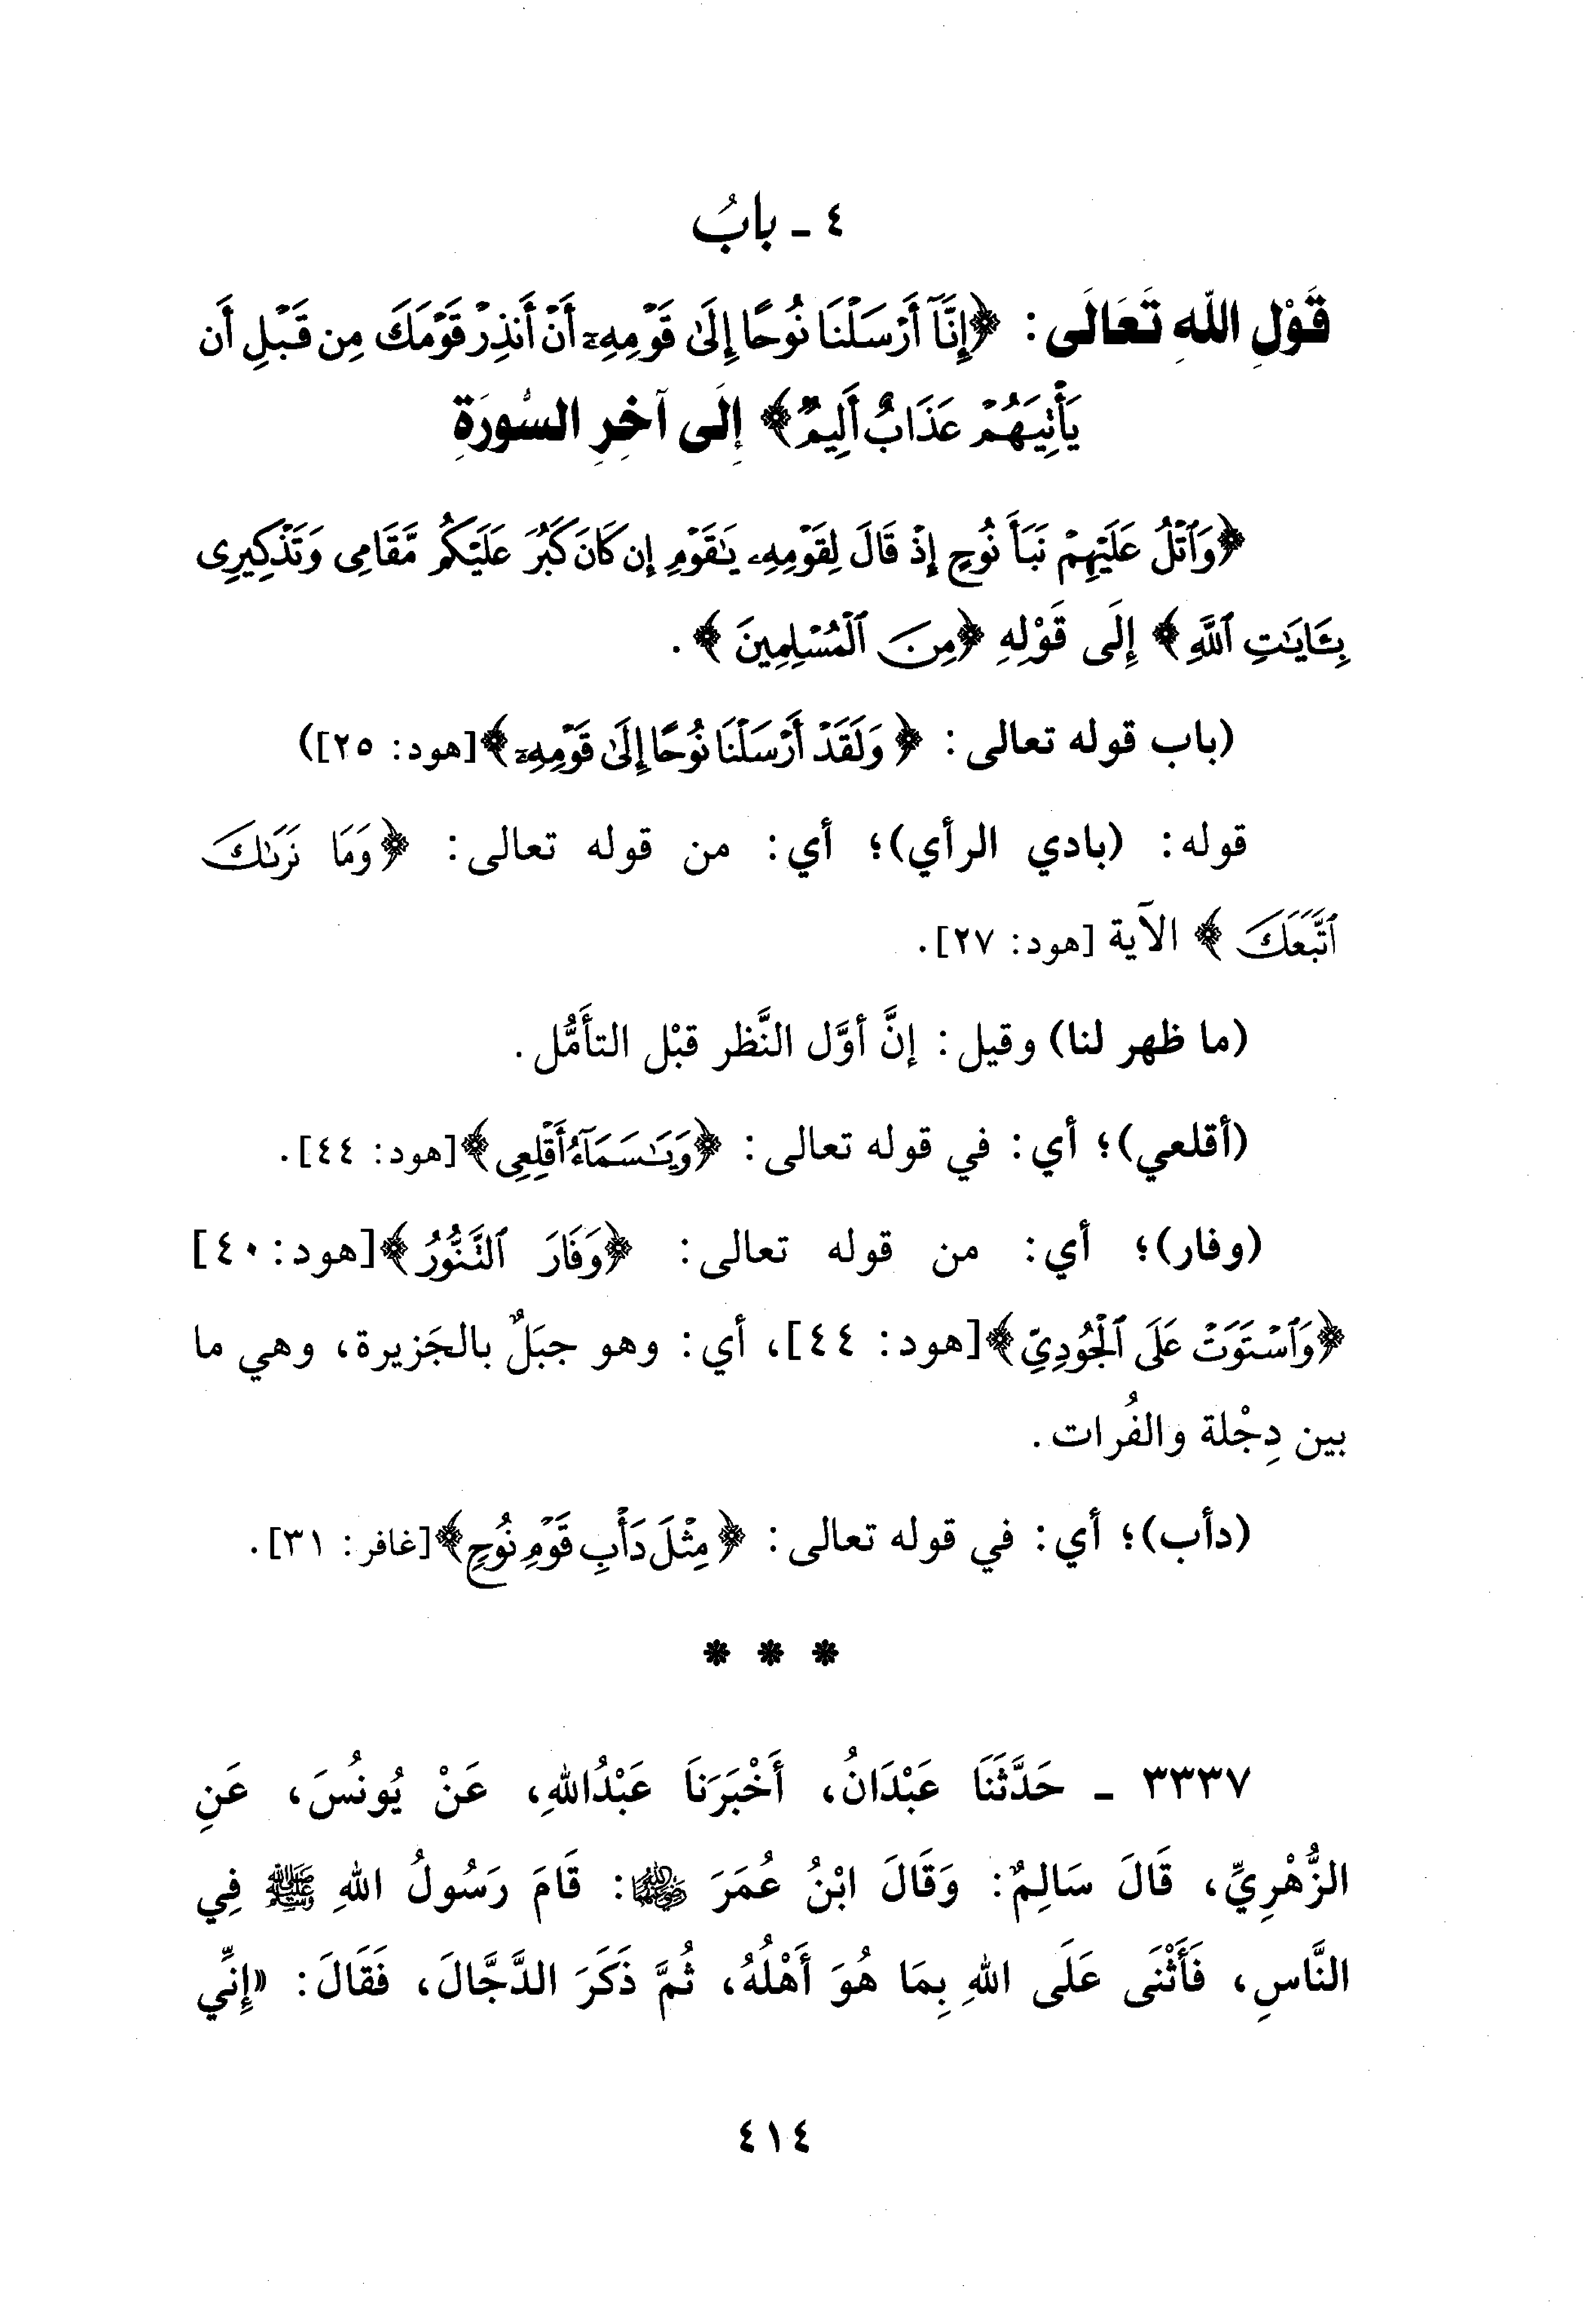 ٤ ـ بابُ
قَوْلِ اللهِ تَعَالَى: ﴿إِنَّآ أَرۡسَلۡنَا نُوحًا إِلَىٰ قَوۡمِهِۦٓ أَنۡ أَنذِرۡ قَوۡمَكَ مِن قَبۡلِ أَن
يَأۡتِيَهُمۡ عَذَابٌ أَلِيمٌ﴾ إِلَى آخِرِ السُّورَةِ
﴿وَٱتۡلُ عَلَيۡهِمۡ نَبَأَ نُوحٍ إِذۡ قَالَ لِقَوۡمِهِۦ يَٰقَوۡمِ إِن كَانَ كَبُرَ عَلَيۡكُم مَّقَامِي وَتَذۡكِيرِي
بِـَٔايَٰتِ ٱللَّهِ﴾ إِلَى قَوْلِهِ ﴿مِنَ ٱلۡمُسۡلِمِينَ﴾.
(باب قوله تعالى: ﴿وَلَقَدۡ أَرۡسَلۡنَا نُوحًا إِلَىٰ قَوۡمِهِۦٓ﴾[هود: ٢٥])
قوله: (بادي الرأي)؛ أي: من قوله تعالى: ﴿وَمَا نَرَىٰكَ
ٱتَّبَعَكَ﴾ الآية [هود: ٢٧].
(ما ظهر لنا) وقيل: إنَّ أوَّل النَّظر قبْل التأَمُّل.
(أقلعي)؛ أي: في قوله تعالى: ﴿وَيَٰسَمَآءُ أَقۡلِعِي﴾[هود: ٤٤].
(وفار)؛ أي: من قوله تعالى: ﴿وَفَارَ ٱلتَّنُّورُ﴾[هود: ٤٠]
﴿وَٱسۡتَوَتۡ عَلَى ٱلۡجُودِيِّ﴾[هود: ٤٤]، أي: وهو جبَلٌ بالجَزيرة، وهي ما
بين دِجْلة والفُرات.
(دأب)؛ أي: في قوله تعالى: ﴿مِثۡلَ دَأۡبِ قَوۡمِ نُوحٍ﴾[غافر: ٣١].
* * *
٣٣٣٧ ـ حَدَّثَنَا عَبْدَانُ، أَخْبَرَناَ عَبْدُاللهِ، عَنْ يُونسُ‍َ، عَنِ
الزُّهْرِيِّ، قَالَ سَالِمٌ: وَقَالَ ابْنُ عُمَرَ رضي الله عنهما: قَامَ رَسُولُ اللهِ ﷺ فِي
النَّاسِ، فَأَثْنَى عَلَى اللهِ بِمَا هُوَ أَهْلُهُ، ثُمَّ ذَكَرَ الدَّجَّالَ، فَقَالَ: «إِنيِّ
٤١٤